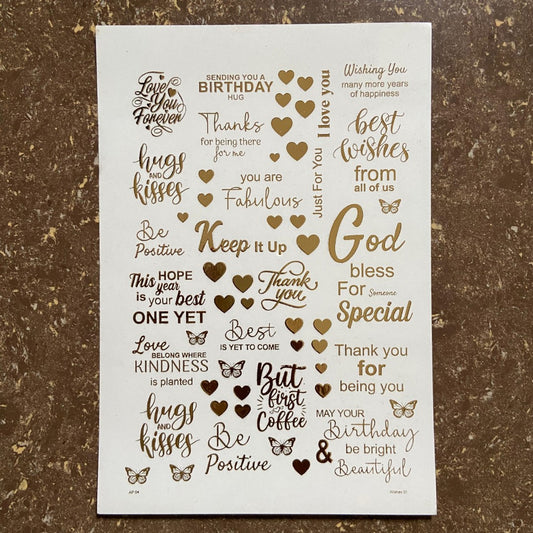 Love
You
Forever
SENDING YOU A
BIRTHDAY
HUG
I love you
Wishing You
many more years
of happiness
Thanks
for being there
for me
Just For You
best
wishes
from
all of us
hugs
AND
kisses
you are
Fabulous
Be
Positive
Keep It Up
God
bless
For Someone
Special
This HOPE
year
is your best
ONE YET
Thank
you
Best
IS YET TO COME
Love
BELONG WHERE
KINDNESS
is planted
Thank you
for
being you
But
first
Coffee
hugs
AND
kisses
Be
Positive
MAY YOUR
Birthday
be bright
&
Beautiful
AP 04
Wishes 01